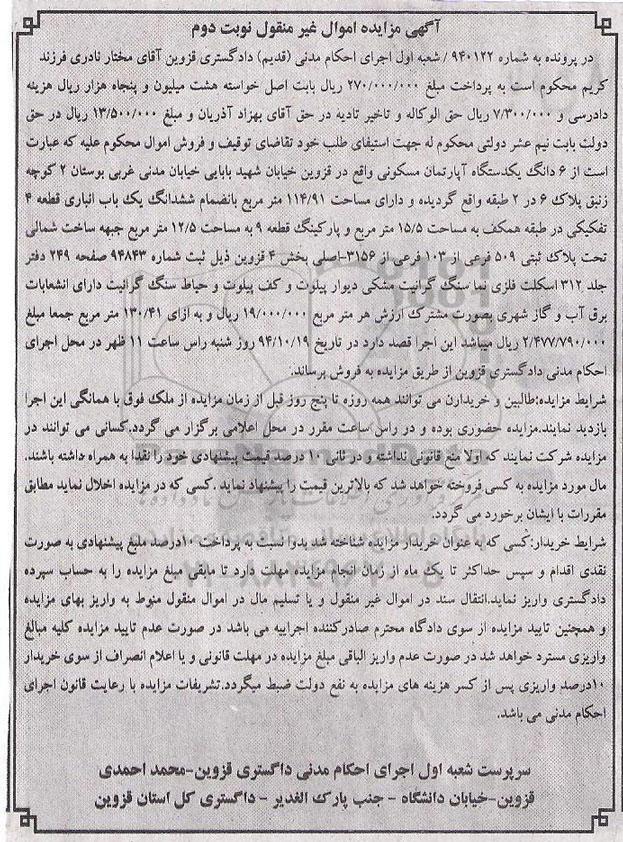 آگهی مزایده اموال غیر منقول نوبت دوم
در پرونده به شماره ۹۴۰۱۲۲ / شعبه اول اجرای احکام مدنی (قدیم) دادگستری قزوین آقای مختار نادری فرزند
کریم محکوم است به پرداخت مبلغ ۲۷۰/۰۰۰/۰۰۰ ریال بابت اصل خواسته هشت میلیون و پنجاه هزار ریال هزینه
دادرسی و ۷/۳۰۰/۰۰۰ ریال حق الوکاله و تاخیر تادیه در حق آقای بهزاد آذریان و مبلغ ۱۳/۵۰۰/۰۰۰ ریال در حق
دولت بابت نیم عشر دولتی محکوم له جهت استیفای طلب خود تقاضای توقیف و فروش اموال محکوم علیه که عبارت
است از ۶ دانگ یکدستگاه آپارتمان مسکونی واقع در قزوین خیابان شهید بابایی خیابان مدنی غربی بوستان ۲ کوچه
زنبق پلاک ۶ در ۲ طبقه واقع گردیده و دارای مساحت ۱۱۴/۹۱ متر مربع بانضمام ششدانگ یک باب انباری قطعه ۴
تفکیکی در طبقه همکف به مساحت ۱۵/۵ متر مربع و پارکینگ قطعه ۹ به مساحت ۱۲/۵ متر مربع جبهه ساخت شمالی
تحت پلاک ثبتی ۵۰۹ فرعی از ۱۰۳ فرعی از ۳۱۵۶-اصلی بخش ۴ قزوین ذیل ثبت شماره ۹۴۸۴۳ صفحه ۲۴۹ دفتر
جلد ۳۱۲ اسکلت فلزی نما سنگ گرانیت مشکی دیوار پیلوت و کف پیلوت و حیاط سنگ گرانیت دارای انشعابات
برق آب و گاز شهری بصورت مشترک ارزش هر متر مربع ۱۹/۰۰۰/۰۰۰ ریال و به ازای ۱۳۰/۴۱ متر مربع جمعا مبلغ
۲/۴۷۷/۷۹۰/۰۰۰ ریال میباشد این اجرا قصد دارد در تاریخ ۹۴/۱۰/۱۹ روز شنبه راس ساعت ۱۱ ظهر در محل اجرای
احکام مدنی دادگستری قزوین از طریق مزایده به فروش برساند.
شرایط مزایده:طالبین و خریدارن می توانند همه روزه تا پنج روز قبل از زمان مزایده از ملک فوق با همانگی این اجرا
بازدید نمایند.مزایده حضوری بوده و در راس ساعت مقرر در محل اعلامی برگزار می گردد.کسانی می توانند در
مزایده شرکت نمایند که اولا منع قانونی نداشته و در ثانی ۱۰ درصد قیمت پیشنهادی خود را نقدا به همراه داشته باشند.
مال مورد مزایده به کسی فروخته خواهد شد که بالاترین قیمت را پیشنهاد نماید .کسی که در مزایده اخلال نماید مطابق
مقررات با ایشان برخورد می گردد.
شرایط خریدار:کسی که به عنوان خریدار مزایده شناخته شد بدوا نسبت به پرداخت ۱۰درصد مبلغ پیشنهادی به صورت
نقدی اقدام و سپس حداکثر تا یک ماه از زمان انجام مزایده مهلت دارد تا مابقی مبلغ مزایده را به حساب سپرده
دادگستری واریز نماید.انتقال سند در اموال غیر منقول و یا تسلیم مال در اموال منقول منوط به واریز بهای مزایده
و همچنین تایید مزایده از سوی دادگاه محترم صادرکننده اجراییه می باشد در صورت عدم تایید مزایده کلیه مبالغ
واریزی مسترد خواهد شد در صورت عدم واریز الباقی مبلغ مزایده در مهلت قانونی و یا اعلام انصراف از سوی خریدار
۱۰درصد واریزی پس از کسر هزینه های مزایده به نفع دولت ضبط میگردد.تشریفات مزایده با رعایت قانون اجرای
احکام مدنی می باشد.
سرپرست شعبه اول اجرای احکام مدنی داگستری قزوین-محمد احمدی
قزوین-خیابان دانشگاه - جنب پارک الغدیر - داگستری کل استان قزوین